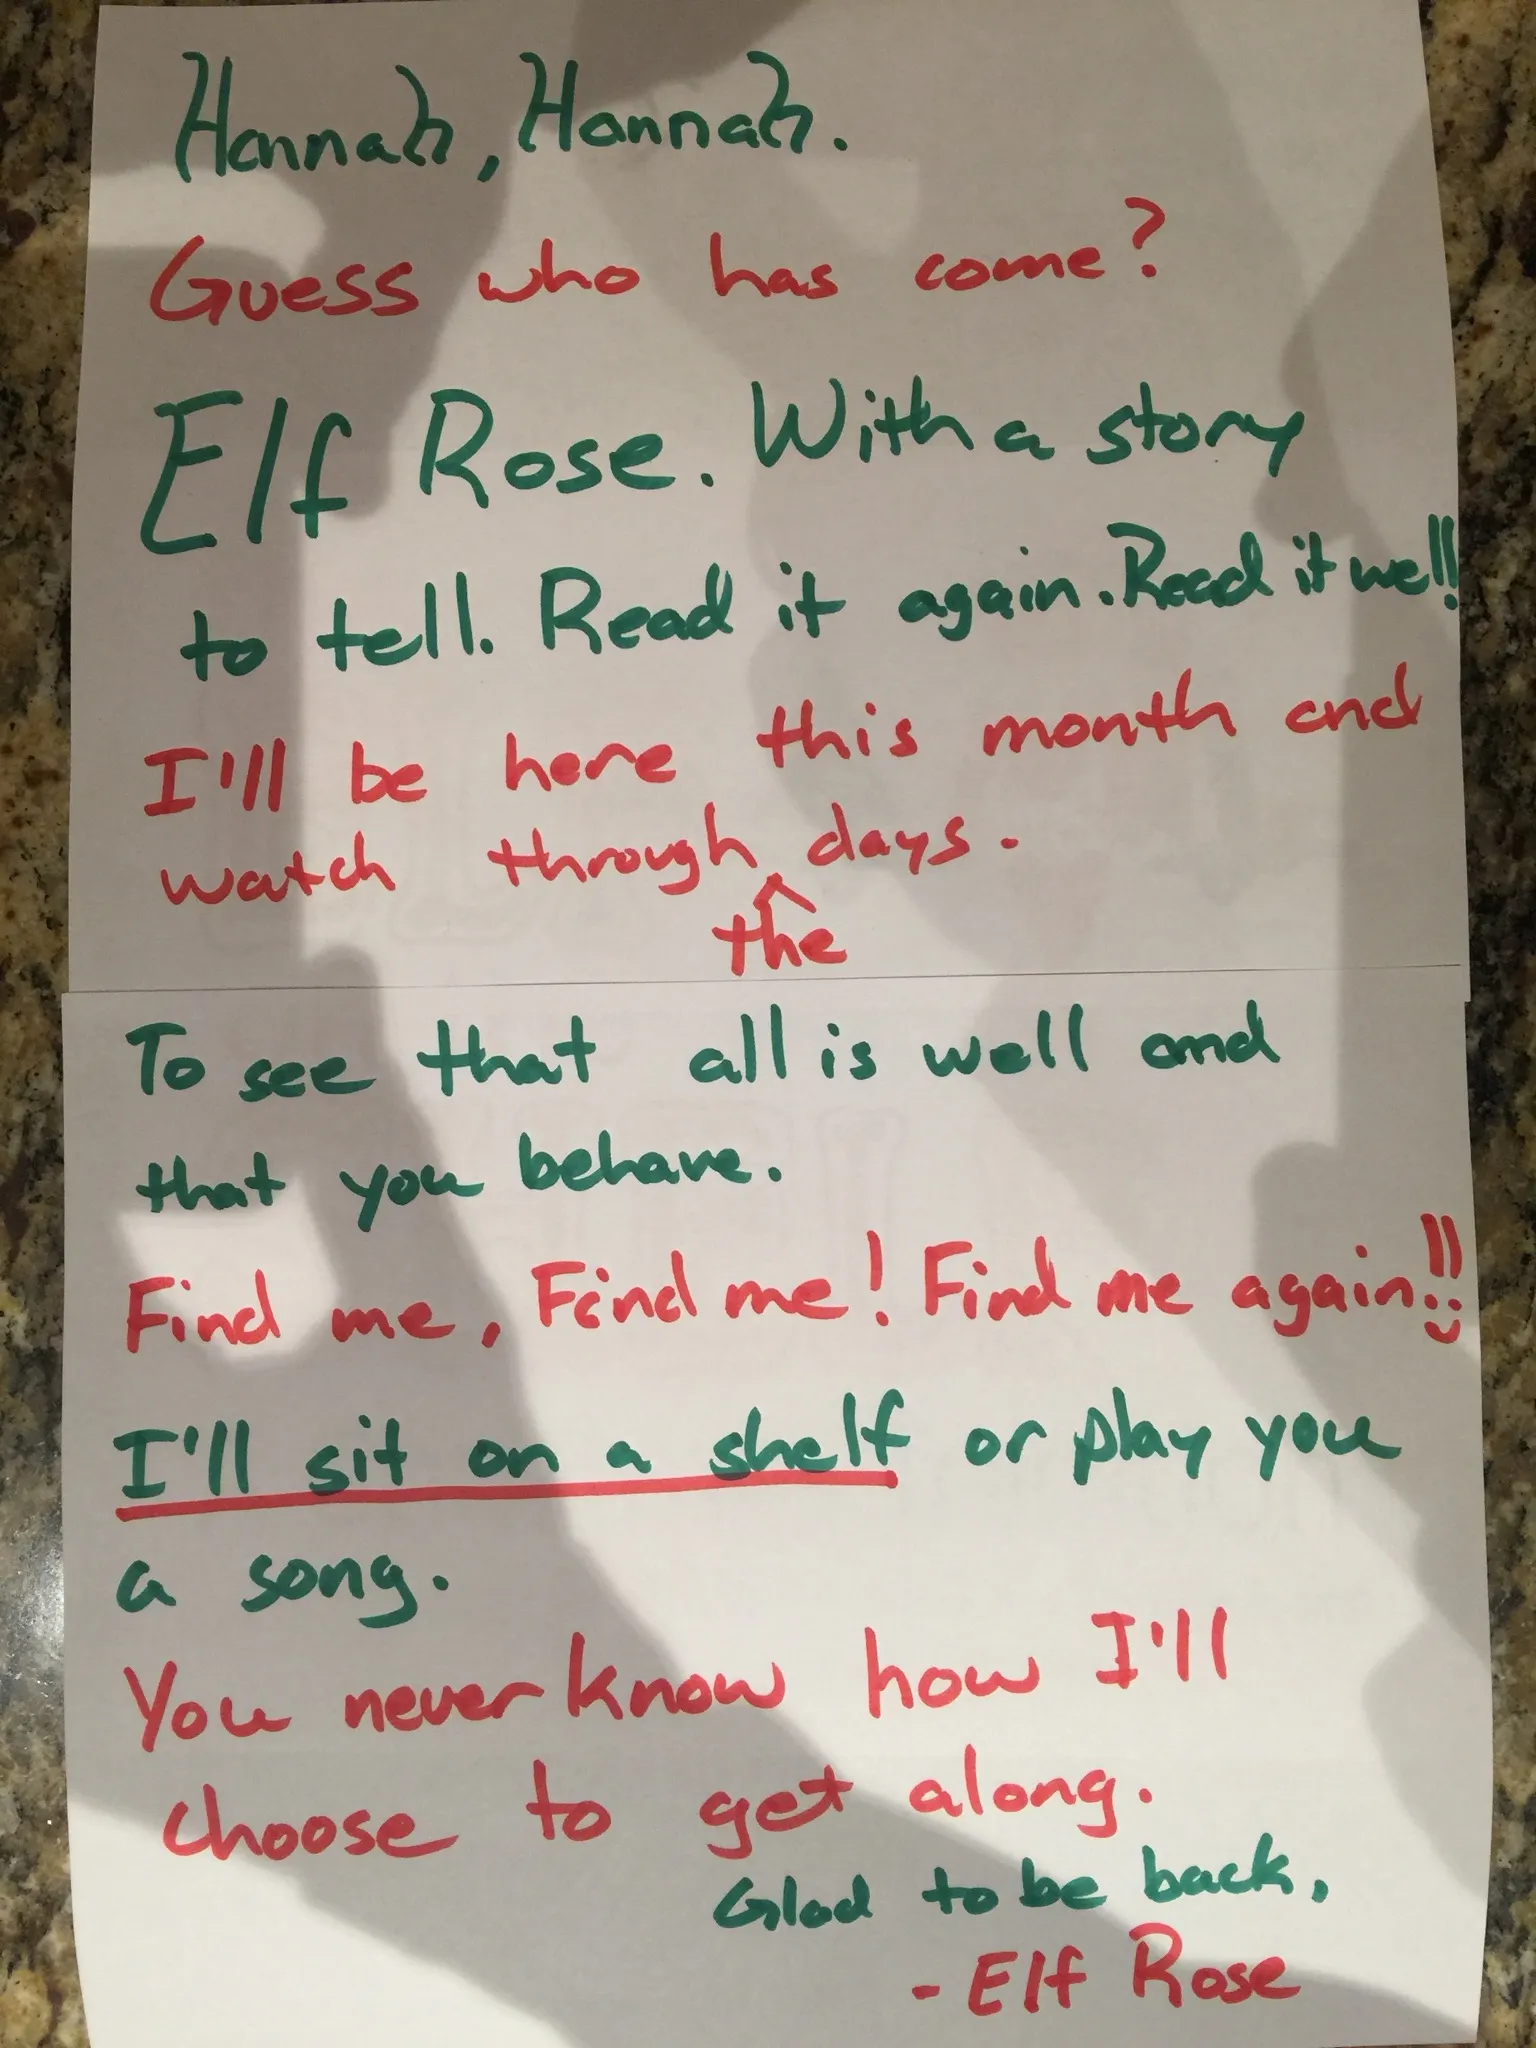 Hannah, Hannah.
Guess who has come?
Elf Rose. With a story
to tell. Read it again. Read it well!
I'll be here this month and
watch through ^ days.
the
To see that all is well and
that you behave.
Find me, Find me! Find me again!!
I'll sit on a shelf or play you
a song.
You never know how I'll
choose to get along.
Glad to be back,
- Elf Rose